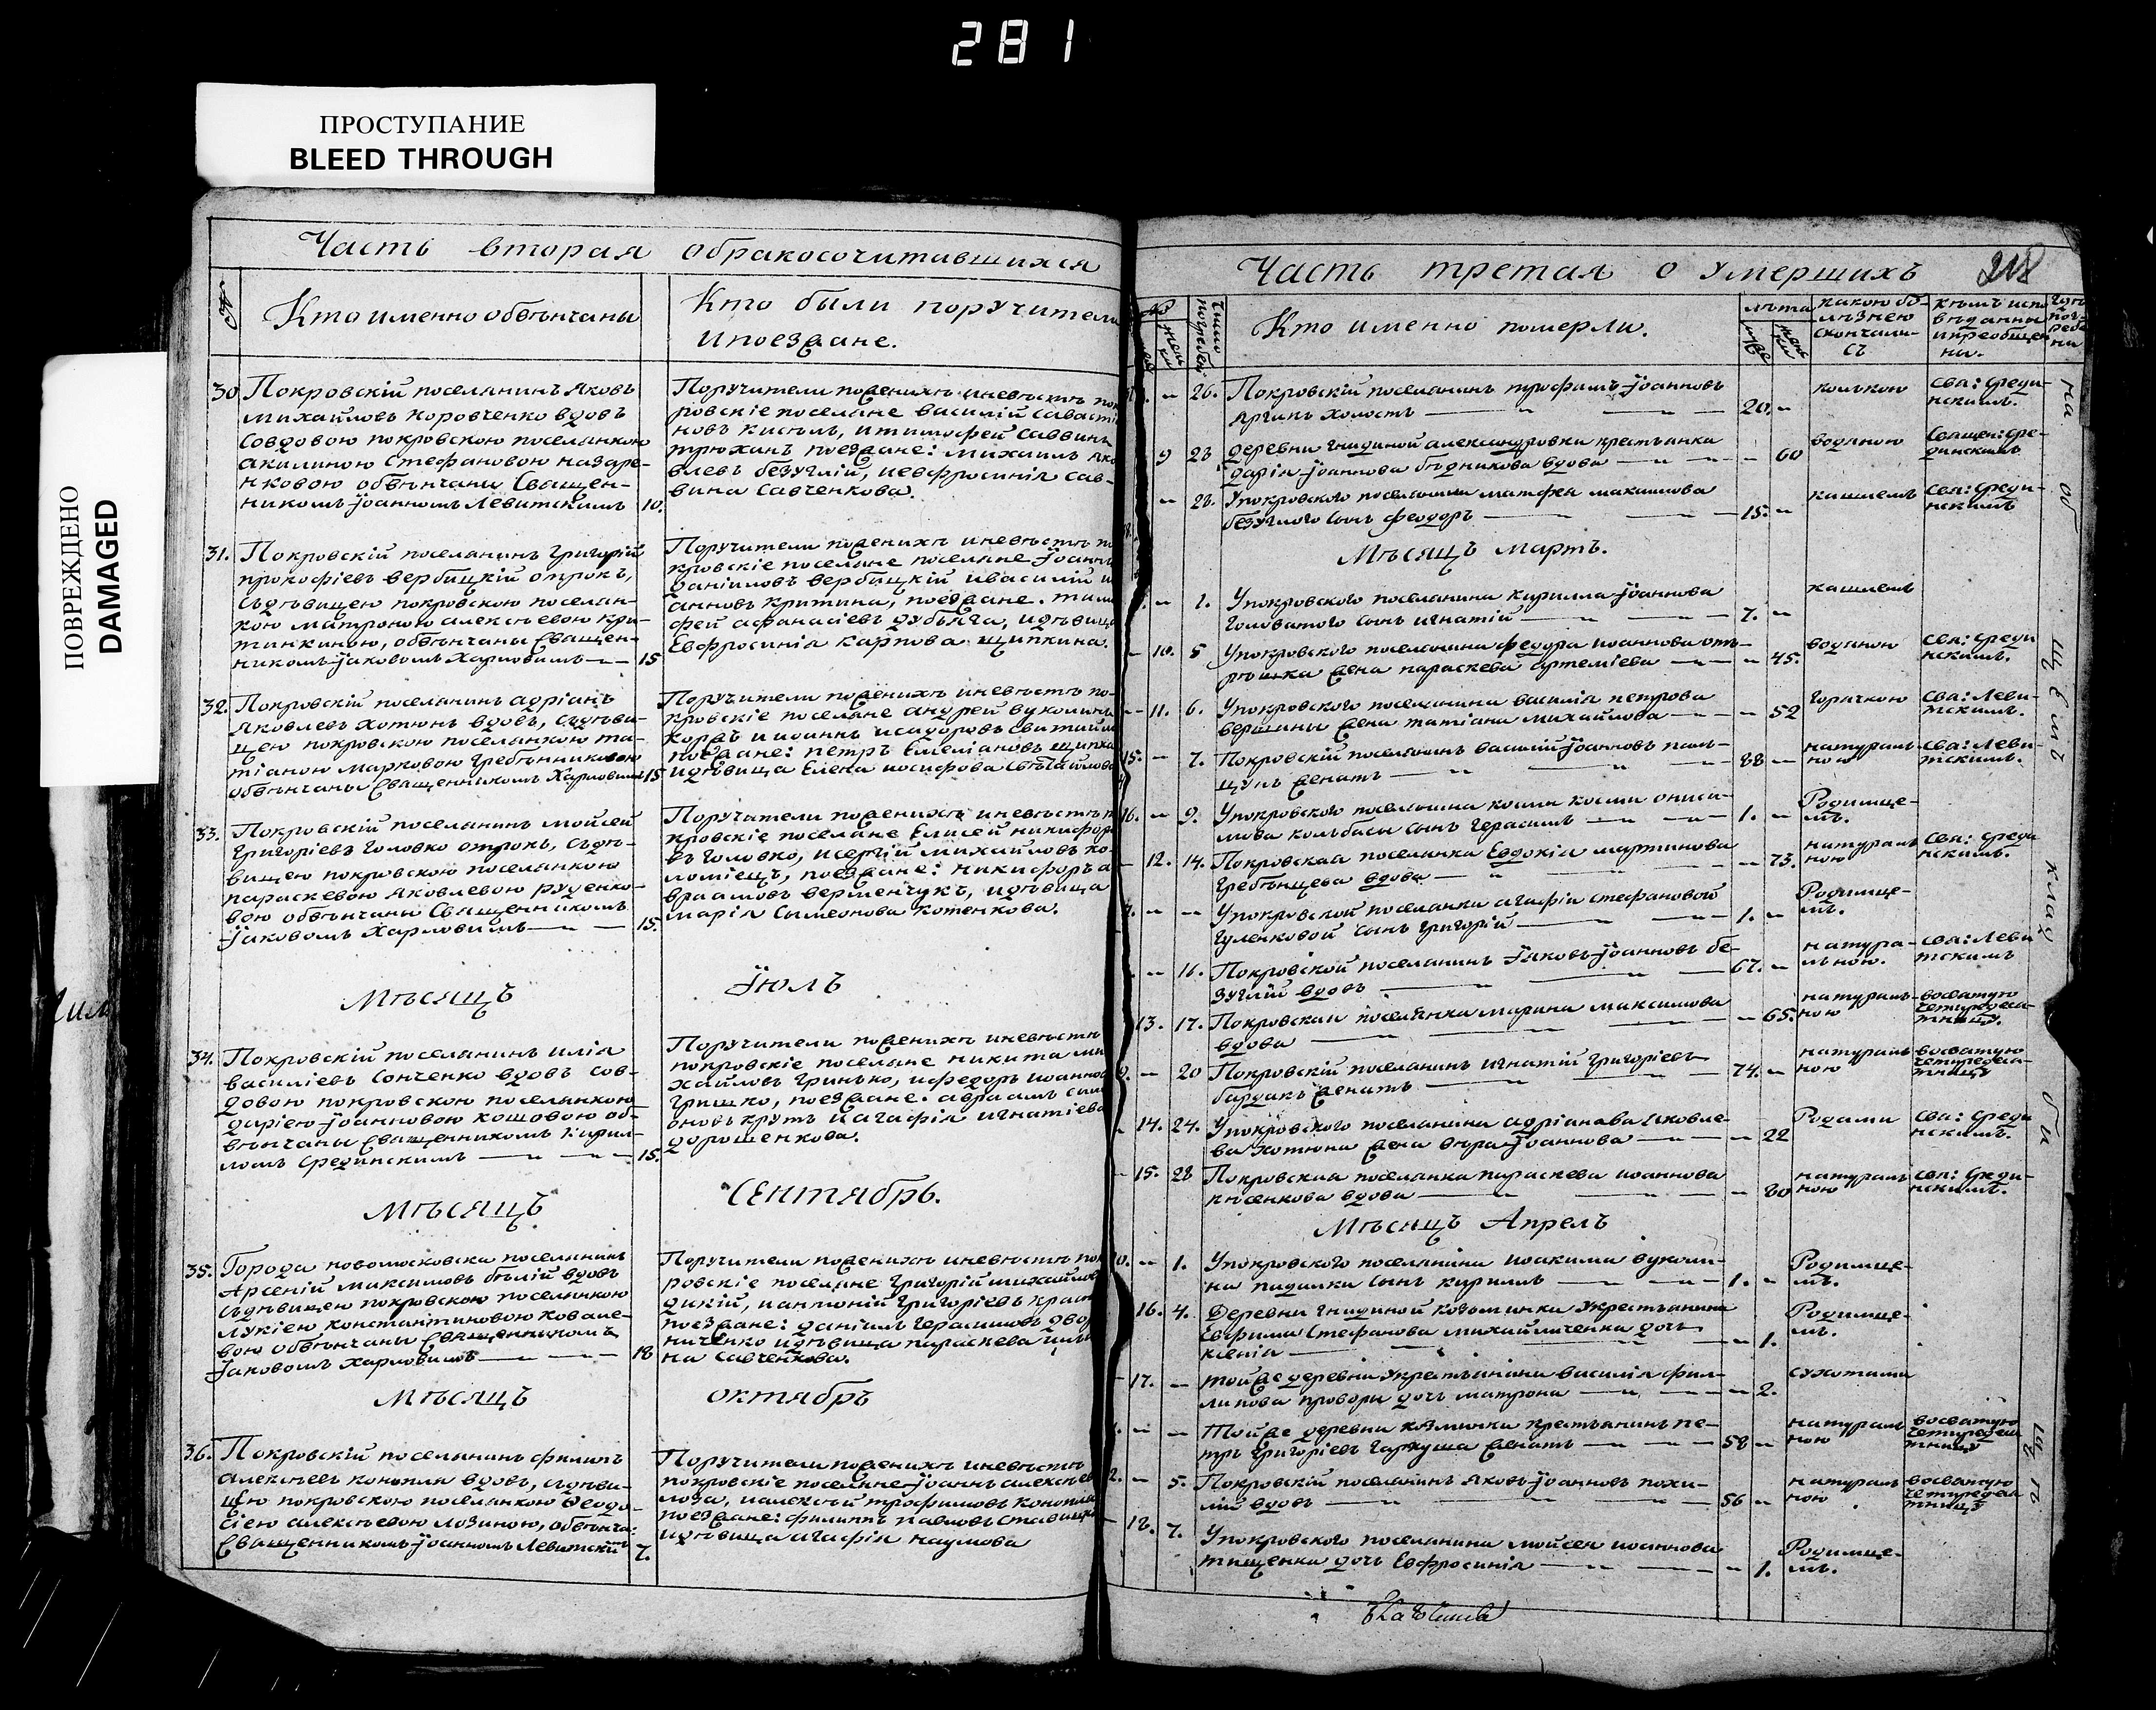 281
ПРОСТУПАНИЕ
BLEED THROUGH
ПОВРЕЖДЕНО
DAMAGED
Часть вторая обракосочитавшихся
№
Кто именно обвѣнчаны
Кто были поручители
ипоезжане.
30 Покровскій поселянинъ яковъ
михайловъ коровченко вдовъ
совдовою покровскою поселянкою
акилиною Стефановою назаре-
нковою обвѣнчаны Священ-
никомъ Іоанномъ Левитскимъ 10.
Поручители поженихѣ иневѣстѣ пок
ровскіе поселяне василій савастія
новъ кисѣль, итимофей саввинъ
трюханъ поезжане: михаилъ яко
влевъ безуглій, иевфросинія сав-
вина савченкова.
31. Покровскій поселянинъ григорій
прокофіевъ вербицкій отрокъ,
съдѣвицею покровскою поселян-
кою матроною алексѣевою кри-
тинкиною, обвѣнчаны Священ-
никомъ Іаковомъ Харповимъ 15
Поручители поженихѣ иневѣстѣ по
кровскіе поселяне поселяне Іоаннъ
даніиловъ вербицкій ивасилій и
анновъ критина, поезжане. тимо
фей афанасіевъ дубьяга, идѣвица
Евфросинія карпова щипкина.
32. Покровскій поселянинъ адріанъ
яковлевъ хотюнъ вдовъ, съдѣви-
цею покровскою поселянкою та-
тіаною марковою гребѣнниковою
обвѣнчаны Священникомъ Харповимъ 15
Поручители поженихѣ иневѣстѣ по-
кровскіе поселяне андрей вуколинъ
исидоровъ
поезжане: петръ Емеліановъ щипка
идѣвица Елена иосифова
33. Покровскій поселянинъ мойсей
григоріевъ головко отрокъ, съдѣ-
вицею покровскою поселянкою
параскевою яковлевою руденко-
вою обвѣнчаны Священникомъ
Іаковомъ Харповимъ 15.
Поручители поженихѣ иневѣстѣ п
кровскіе поселяне Елисей никифоро
въ головко, исергій михайловъ ко-
ломіецъ, поезжане: никифоръ а
враамовъ верменчукъ, идѣвица
марія Сѵмеонова котенкова.
Мѣсяцъ Іюль
34. Покровскій поселянинъ илія
василіевъ Сонченко вдовъ сов-
довою покровскою поселянкою
даріею Іоанновою кошовою об-
вѣнчаны Священникомъ Кирил-
ломъ Срединскимъ 15.
Поручители поженихѣ иневѣстѣ
покровскіе поселяне никита ми
хайловъ гринько, ифедоръ иоаннов
гришко, поезжане. авраамъ сим
оновъ крутъ иагафія игнатіева
дорошенкова.
Мѣсяцъ Сентябрь.
35. Города новомосковска поселянинъ
Арсеній максимовъ бѣлій вдовъ
съдѣвицею покровскою поселянкою
лукіею константиновою ковале-
вою обвѣнчаны Священникомъ
Іаковомъ Харповимъ 18
Поручители поженихѣ иневѣстѣ пок
ровскіе поселяне григорій михайлов
дикій, иантоній григоріевъ
поезжане: даніилъ герасимовъ двор
ниченко идѣвица параскева
на савченкова.
Мѣсяцъ октябрь
36. Покровскій поселянинъ филиппъ
алексѣевъ конопля вдовъ, съдѣви-
цею покровскою поселянкою Феодо-
сіею алексѣевою лозиною, обвѣнча:
Священникомъ Іоанномъ Левитскимъ 7.
Поручители поженихѣ иневѣстѣ
покровскіе поселяне Іоаннъ алексѣев
лоза, иалексѣй трофимовъ конопля
поезжане: филиппъ павловъ
идѣвица агафія наумова
Часть третая о умершихъ
218
Число погребен
Кто именно померли.
лѣта
какою бо-
лѣзнею
скончали-
съ
Кѣмъ испо
вѣданны
ипреобщен
ны.
гдѣ
пог
ребе
ны
26. Покровскій поселянинъ трофимъ Іоанновъ
холостъ 20. колькою Свя: Среди-
нскимъ.
9 23 деревни гнидиной александровки крестьянка
дарія Іоаннова бѣдникова вдова 60 водяною Священ: Сре-
динскимъ
28. Упокровского поселянина матфея максимова
безуглого сынъ феодоръ 15. кашлемъ Свя: Среди-
нскимъ
Мѣсяцъ Мартъ.
1. Упокровского поселянина кирилла Іоаннова
головатого сынъ игнатій 7. кашлемъ
10. 5 Упокровского поселянина федора иоаннова
жена параскева артеміева 45. водяною Свя: Среди
нскимъ.
11. 6. Упокровского поселянина василія петрова
вершины жена татіана михайлова 52 горячкою Свя: Леви-
тскимъ.
15. 7. Покровскій поселянинъ василій Іоанновъ
женатъ 88 натураль-
ною Свя: Леви-
тскимъ.
16. 9. Упокровского поселянина козми аниси-
мова кольбасы сынъ герасимъ 1. Родимце-
мъ.
12. 14. Покровская поселянка Евдокія мартинова
гребѣнцева вдова 73. натураль
ною Свя: Среди
нскимъ.
Упокровской поселянки агафіи стефановой
гуленковой сынъ григорій 1. Родимце-
мъ.
16. Покровской поселянинъ Іаковъ Іоанновъ бе-
зуглій вдовъ 67. натура-
льною. Свя: Леви
тскимъ
13. 17. Покровская поселянка марина максимова
вдова 65. натураль-
ною восвятую
четиредеся-
тницу.
20 Покровскій поселянинъ игнатій григоріевъ
бардакъ женатъ 74. натураль
ною восвятую
четиредеся-
тницу
14. 24. Упокровского поселянина адріанава яковле-
ва хотюна жена вѣра Іоаннова 22 Родами Свя: Среди
нскимъ.
15. 28 Покровская поселянка параскева иоаннова
вдова 80 натураль
ною Свя: Среди-
нскимъ.
Мѣсяцъ Апрель
1. Упокровского поселянина иоакима вуколи-
на пидилки сынъ кирилъ 1. Родимце-
мъ.
16. 4. Деревни гнидиной козьминки Укрестьянина
Евфима Стефанова михайличенка дочь
ксенія 1. Родимце-
мъ.
17. Тойже деревни Укрестьянина василія фил-
липова проворы дочь матрона 2. сухотами
Тойже деревни козминки крестьянинъ пе-
тръ григоріевъ гаркуша женатъ 58 натураль
ною восвятую
четиредеся
тницу
5. Покровскій поселянинъ яковъ Іоанновъ похи-
лій вдовъ 56 натураль
ною восвятую
четиредеся
тницу
18. 7. Упокровского поселянина мойсея иоаннова
тищенка дочь Евфросинія 1. Родимце-
мъ.
на общемъ кладбищѣ